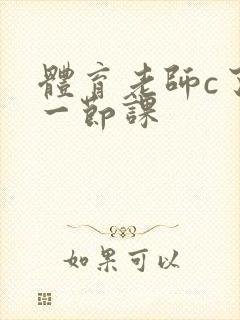 體育老師c了
一節課
如果可以